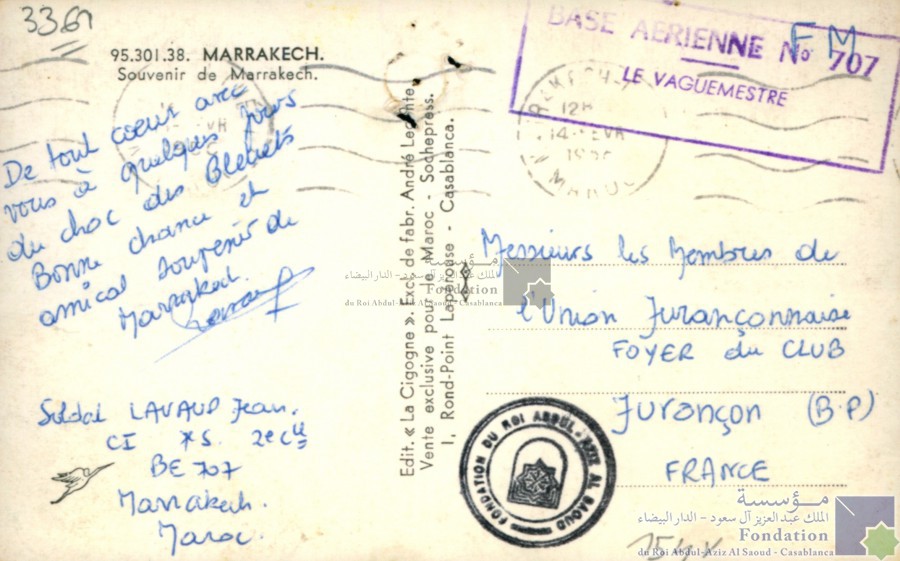 3361
95.301.38. MARRAKECH.
Souvenir de Marrakech.
De tout coeur avec
vous à quelques jours
du choc des Bleuets
Bonne chance et
amical souvenir de
Marrakech.
Soldat LAVAUD Jean.
CI 2e Cie
BE 707
Marrakech.
Maroc.
Edit. « La Cigogne ». Excl. de fabr. André Leconte,
Vente exclusive pour le Maroc - Sochepress.
1, Rond-Point Laperouse - Casablanca.
BASE AERIENNE No 707
LE VAGUEMESTRE
F M
12H
14
Messieurs les Membres de
l'Union Jurançonnaise
FOYER du CLUB
Jurançon (B.P)
FRANCE
FONDATION DU ROI ABDUL-AZIZ AL SAOUD
مؤسسة
الملك عبد العزيز آل سعود - الدار البيضاء
Fondation
du Roi Abdul-Aziz Al Saoud - Casablanca
مؤسسة
الملك عبد العزيز آل سعود - الدار البيضاء
Fondation
du Roi Abdul-Aziz Al Saoud - Casablanca